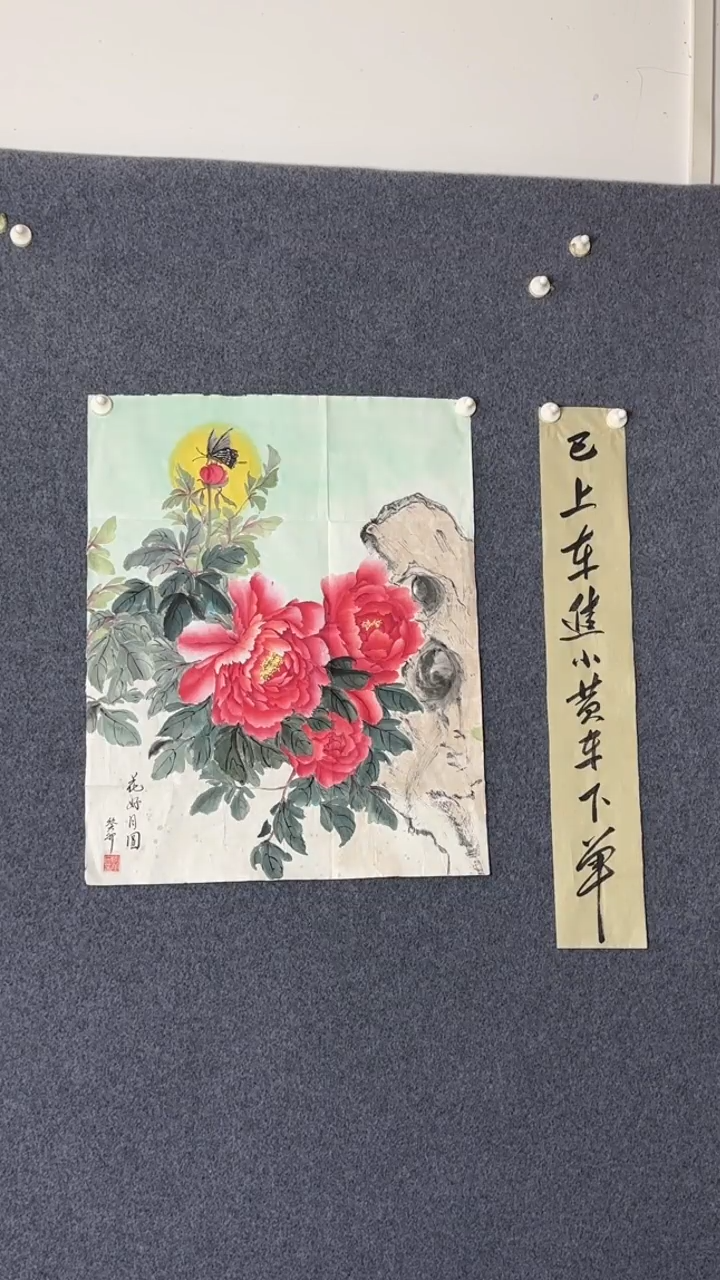 已上车进小黄车下单
花好月圆
癸卯